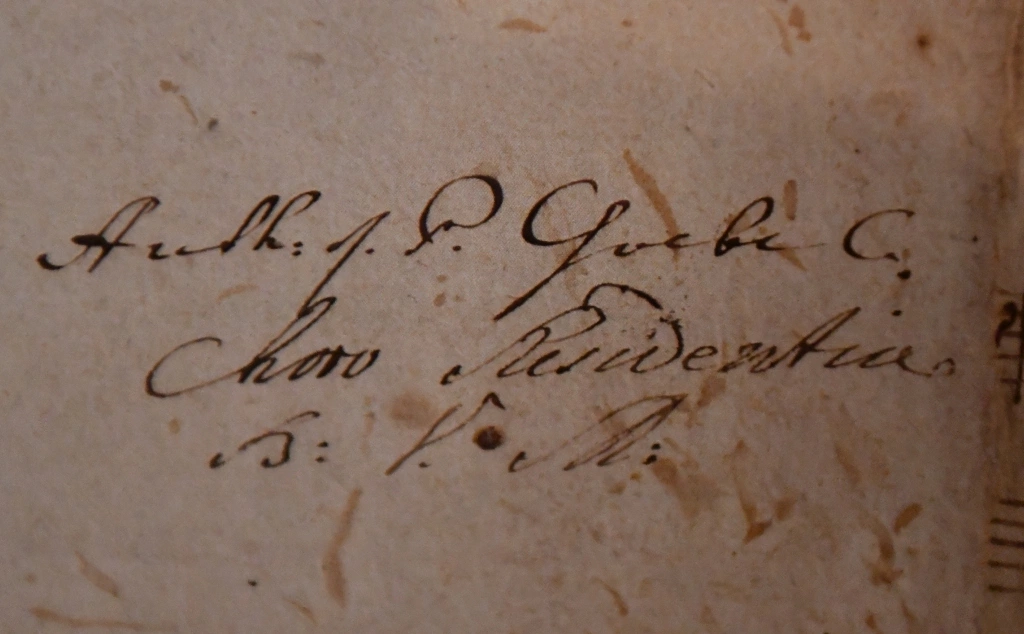 Auth: J. P. Goebe C.
Choro Residentiae
B: V. M: